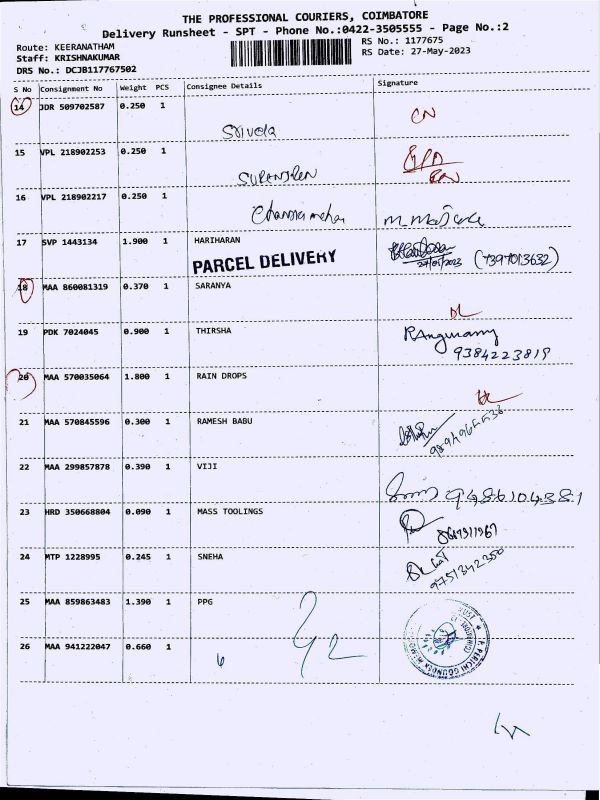 THE PROFESSIONAL COURIERS, COIMBATORE
Delivery Runsheet - SPT - Phone No.:0422-3505555 - Page No.:2
Route: KEERANATHAM
RS No.: 1177675
Staff: KRISHNAKUMAR
RS Date: 27-May-2023
DRS No.: DCJB117767502
S No Consignment No Weight PCS Consignee Details Signature
14 JDR 509702587 0.250 1
CN
15 VPL 218902253 0.250 1
16 VPL 218902217 0.250 1
17 SVP 1443134 1.900 1 HARIHARAN
PARCEL DELIVERY
27/05/2023 (7397013632)
18 MAA 860081319 0.370 1 SARANYA
DL
19 PDK 7024045 0.900 1 THIRSHA
RAngasamy
9384223819
20 MAA 570035064 1.800 1 RAIN DROPS
21 MAA 570845596 0.300 1 RAMESH BABU
22 MAA 299857878 0.390 1 VIJI
9486104381
23 HRD 350668804 0.090 1 MASS TOOLINGS
24 MTP 1228995 0.245 1 SNEHA
9751342350
25 MAA 859863483 1.390 1 PPG
26 MAA 941222047 0.660 1